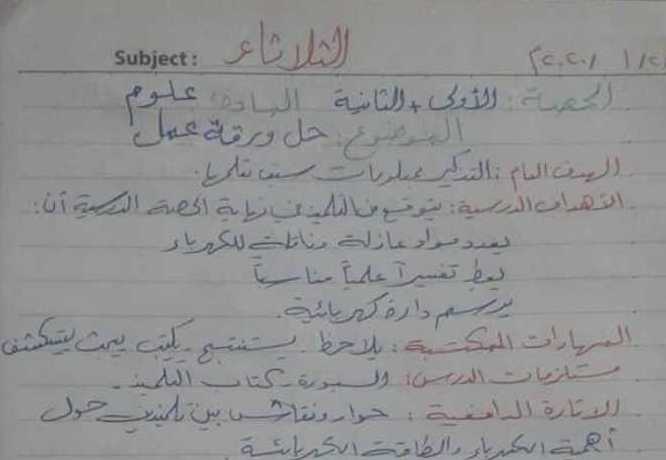 Subject: الثلاثاء ٢٠٢٠م / ١ / ٢١
الحصة: الأولى + الثانية المادة: علوم
الموضوع: حل ورقة عمل
الهدف العام: التذكير بمعلومات سبق تعلمها.
الأهداف الدرسية: يتوقع من التلميذ في نهاية الحصة الدرسية أن:
يعدد مواد عازلة وناقلة للكهرباء
يعط تفسيراً علمياً مناسباً
يرسم دارة كهربائية.
المهارات المكتسبة: يلاحظ يستنتج يكتب يبحث يستكشف
مستلزمات الدرس: السبورة - كتاب التلميذ.
الاثارة الدافعية: حوار ونقاش بين تلميذين حول
أهمية الكهرباء والطاقة الكهربائية.